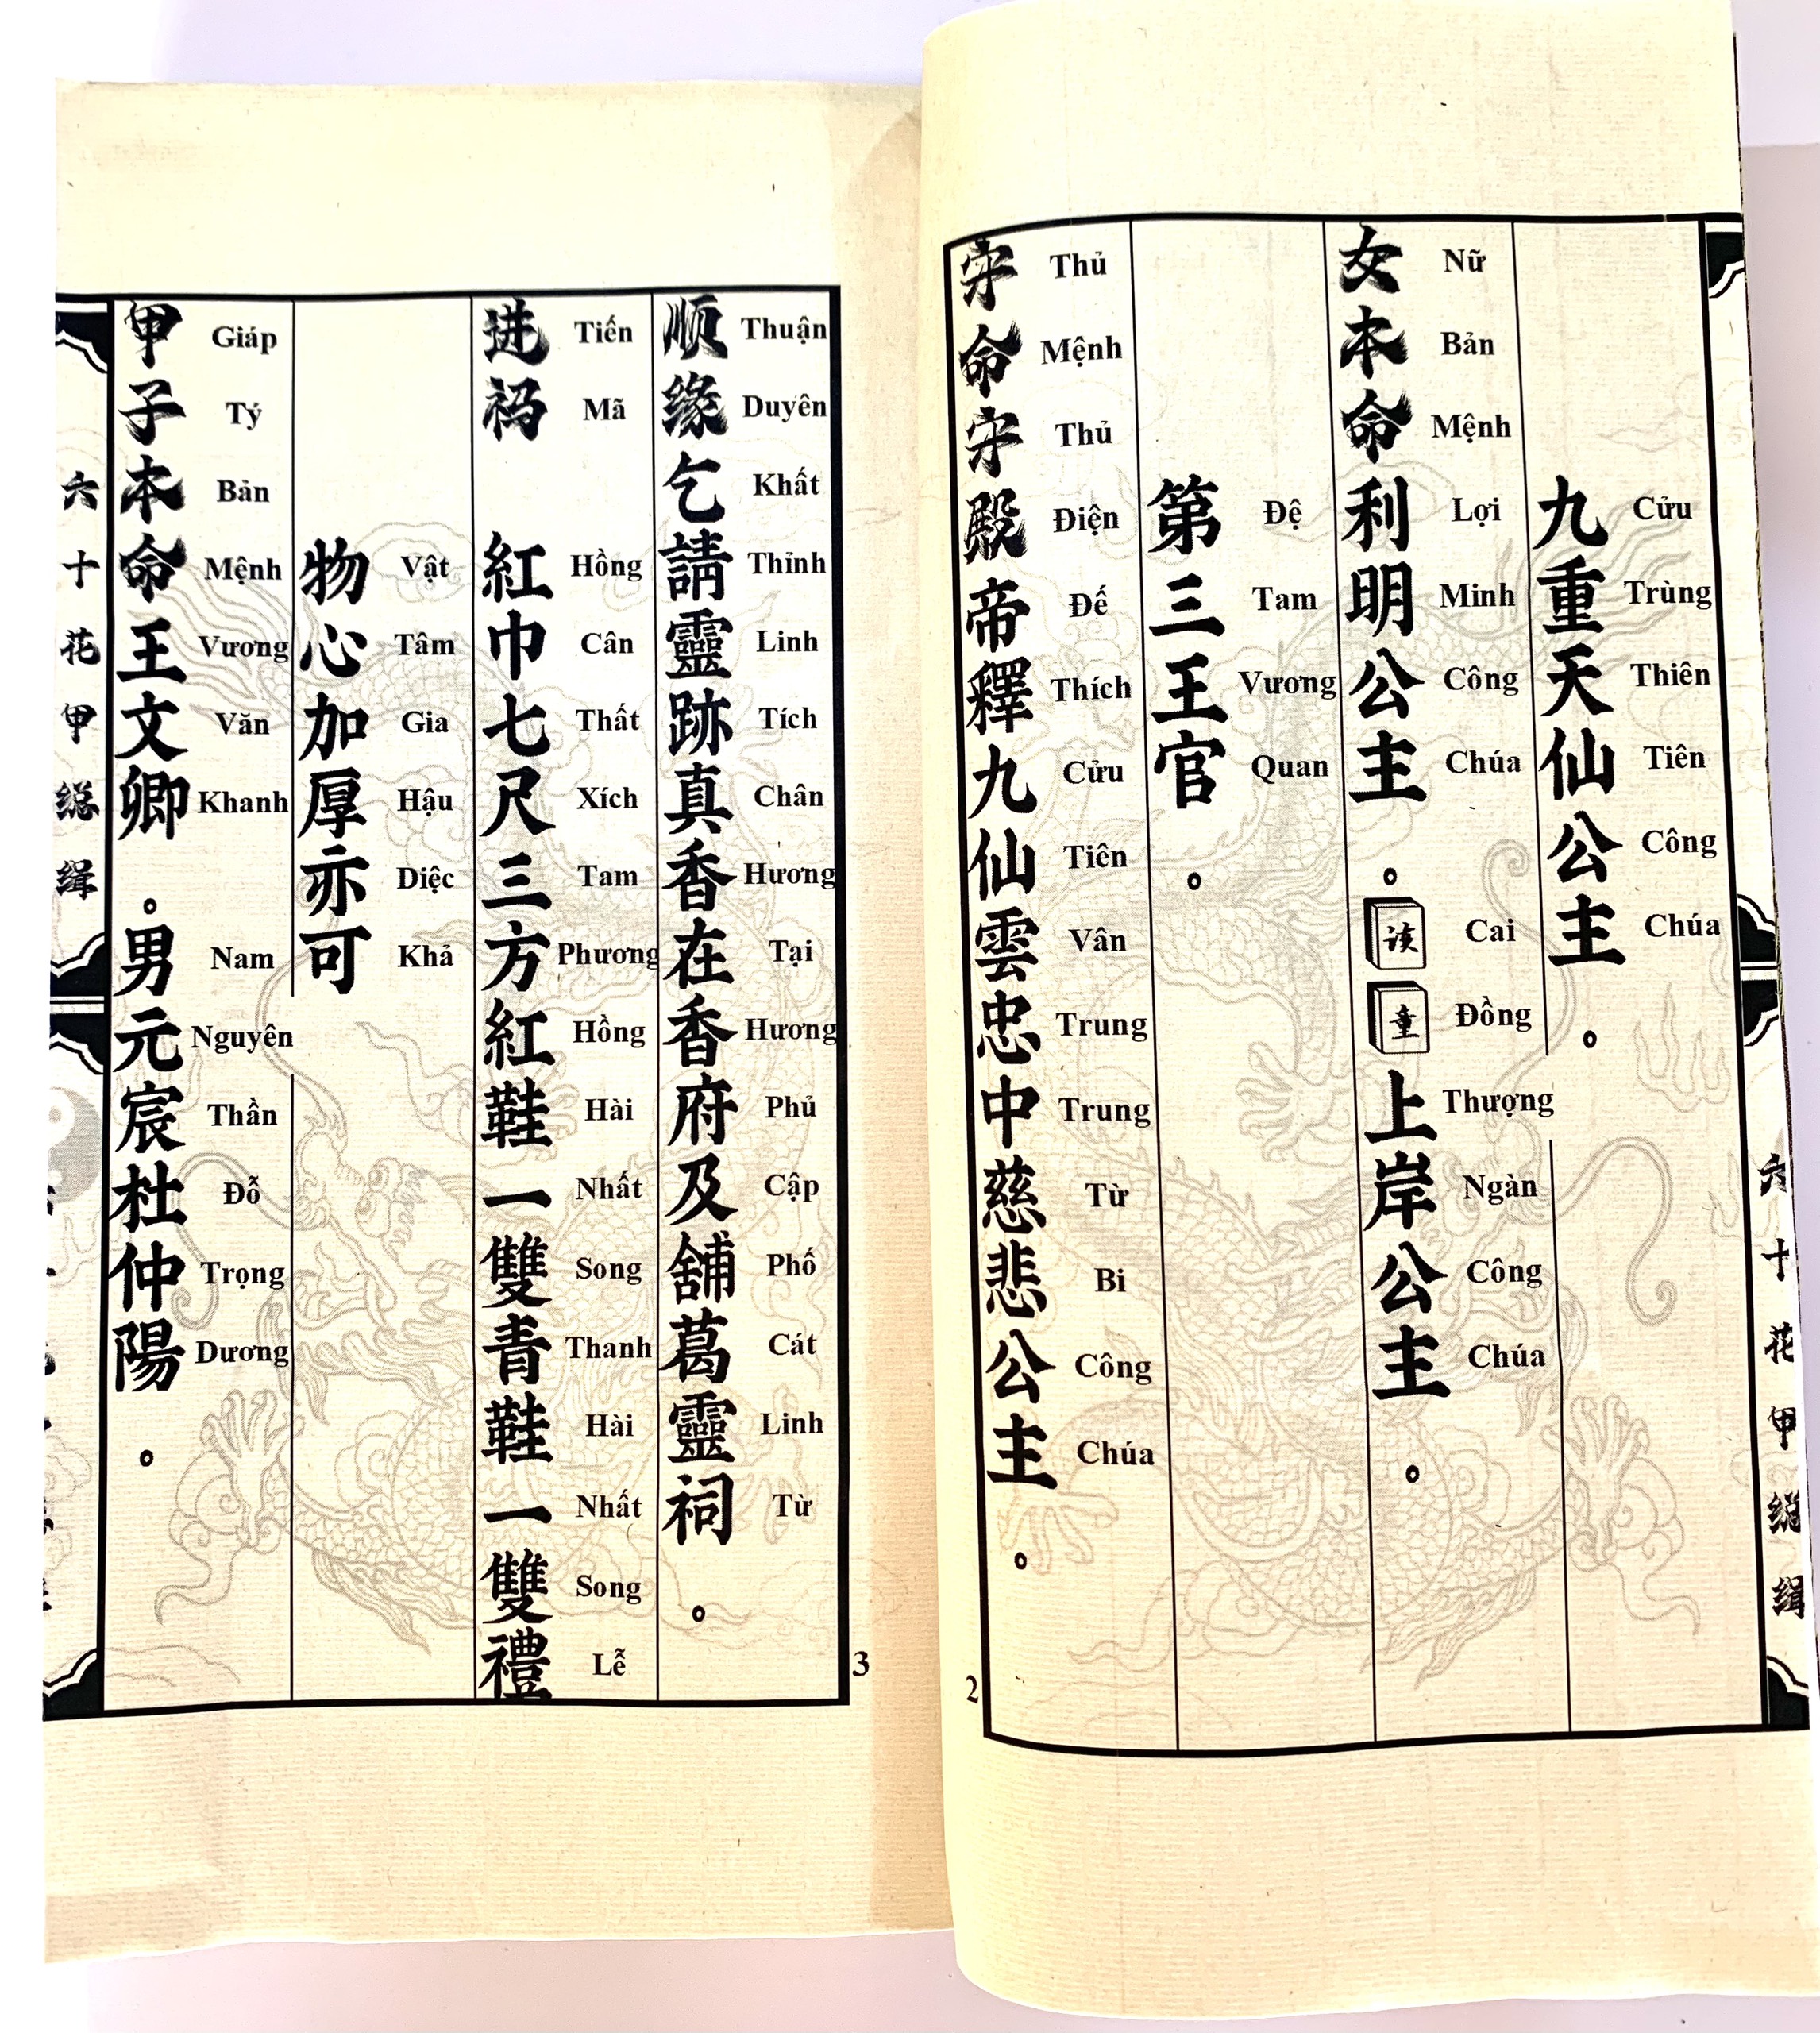 九重天仙公主。
Cửu Trùng Thiên Tiên Công Chúa
女本命利明公主。该童上岸公主。
Nữ Bản Mệnh Lợi Minh Công Chúa Cai Đồng Thượng Ngàn Công Chúa
第三王官。
Đệ Tam Vương Quan
守命守殿帝釋九仙雲忠中慈悲公主。
Thủ Mệnh Thủ Điện Đế Thích Cửu Tiên Vân Trung Trung Từ Bi Công Chúa
六十花甲總缉
2
顺缘乞請靈跡真香在香府及舖葛靈祠。
Thuận Duyên Khất Thỉnh Linh Tích Chân Hương Tại Hương Phủ Cập Phố Cát Linh Từ
进祃 紅巾七尺三方紅鞋一雙青鞋一雙禮
Tiến Mã Hồng Cân Thất Xích Tam Phương Hồng Hài Nhất Song Thanh Hài Nhất Song Lễ
物心加厚亦可
Vật Tâm Gia Hậu Diệc Khả
甲子本命王文卿。男元宸杜仲陽。
Giáp Tý Bản Mệnh Vương Văn Khanh Nam Nguyên Thần Đỗ Trọng Dương
六十花甲總缉
3